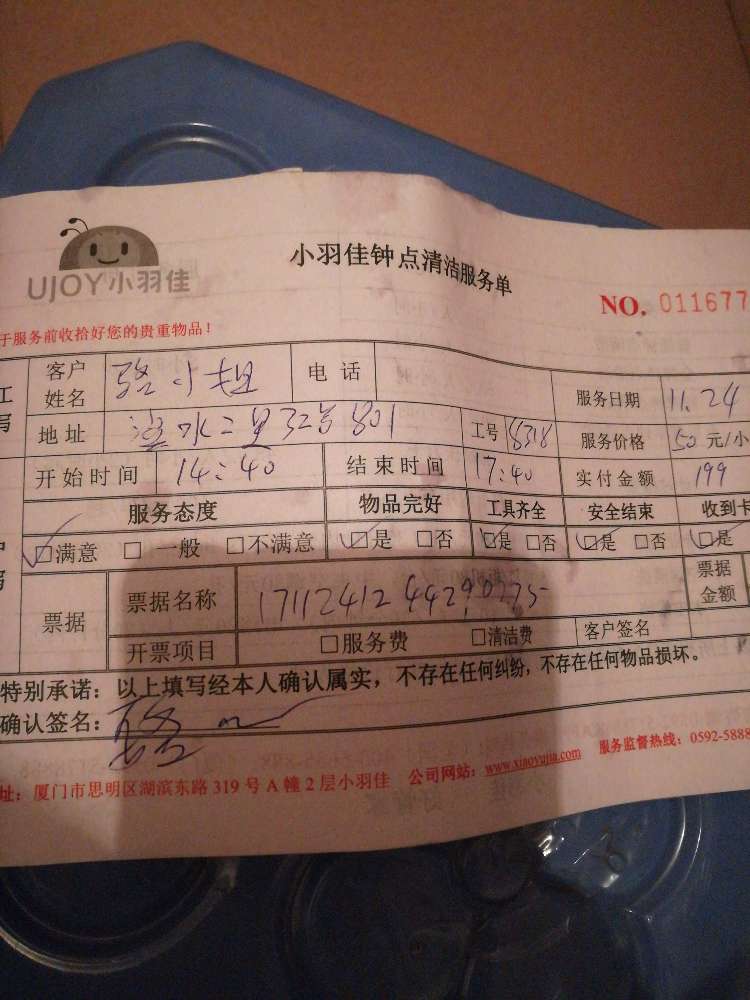 UJOY小羽佳
小羽佳钟点清洁服务单
NO. 011677
于服务前收拾好您的贵重物品！
客户姓名 骆小姐 电话 服务日期 11.24
地址 水二里32号801 工号 8318 服务价格 50元/小
开始时间 14:40 结束时间 17:40 实付金额 199
服务态度 物品完好 工具齐全 安全结束 收到卡
□满意 □一般 □不满意 □是 □否 □是 □否 □是 □否 □是
票据 票据名称 票据金额
开票项目 □服务费 □清洁费 客户签名
特别承诺：以上填写经本人确认属实，不存在任何纠纷，不存在任何物品损坏。
确认签名：骆
址：厦门市思明区湖滨东路319号A幢2层小羽佳 公司网站：www.xiaoyujia.com 服务监督热线：0592-5888